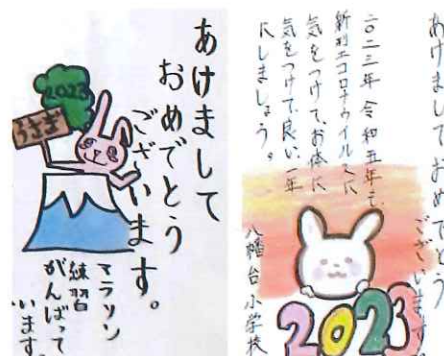 あけまして
おめでとう
ございます。
2023
うさぎ
マラソン
練習
がんばって
います。
あけましておめでとう
ございます
二〇二三年 令和五年も、
新型コロナウイルスに
気をつけて、お体に
気をつけて、良い一年
にしましょう。
八幡台小学校
2023